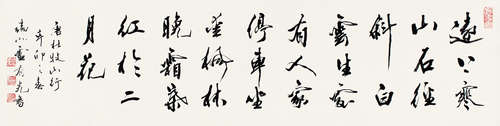 遠上寒
山石徑
斜白
雲生處
有人家
停車坐
愛楓林
晚霜葉
紅於二
月花
唐杜牧山行
辛卯之